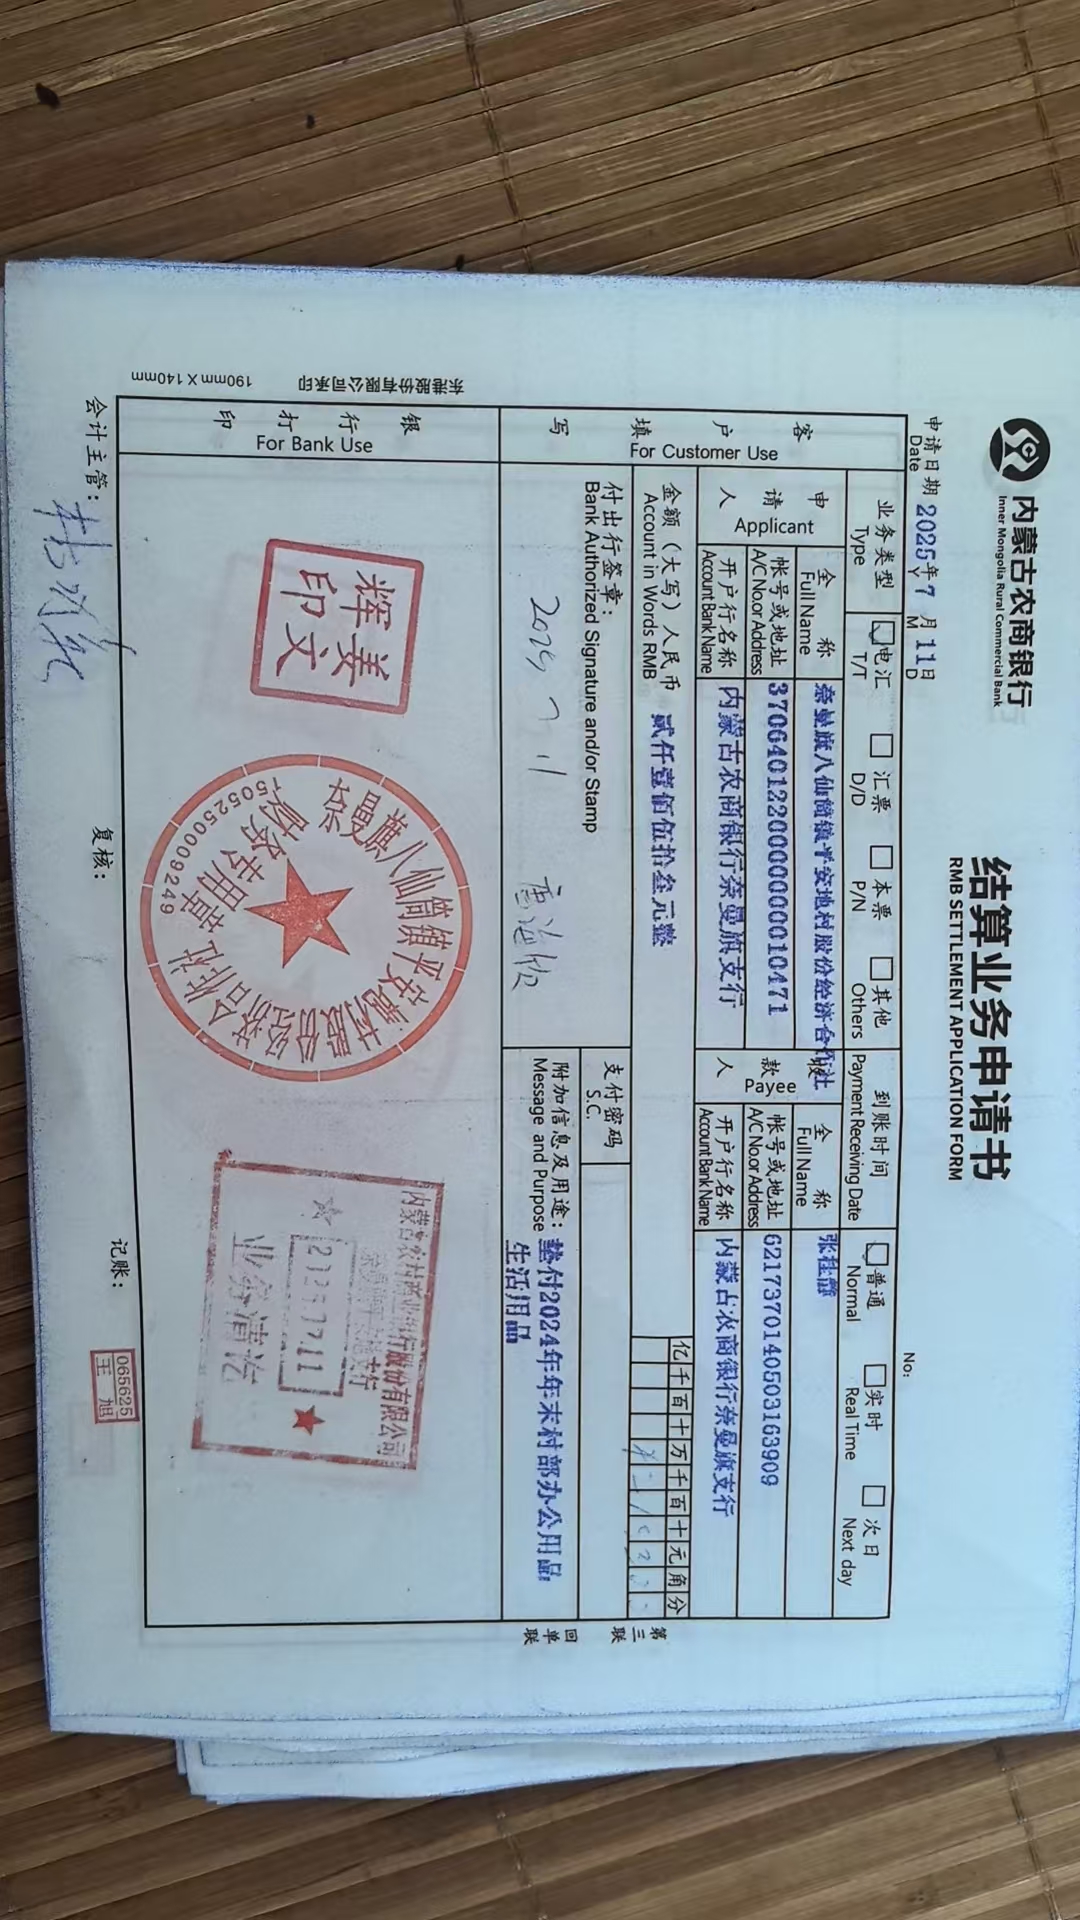 内蒙古农商银行
Inner Mongolia Rural Commercial Bank
结算业务申请书
RMB SETTLEMENT APPLICATION FORM
No:
申请日期 2025年7月11日
Date Y M D
业务类型 电汇 汇票 本票 其他
Type T/T D/D P/N Others
到账时间 普通 实时 次日
Payment Receiving Date Normal Real Time Next day
客户填写
For Customer Use
申请人
Applicant
全称 奈曼旗八仙筒镇平安地村股份经济合作社
Full Name
帐号或地址 3706401220000000010471
A/C No.or Address
开户行名称 内蒙古农商银行奈曼旗支行
Account Bank Name
收款人
Payee
全称 张桂静
Full Name
帐号或地址 6217370140503163909
A/C No.or Address
开户行名称 内蒙古农商银行奈曼旗支行
Account Bank Name
金额（大写）人民币 贰仟壹佰伍拾叁元整
Account in Words RMB
亿千百十万千百十元角分
付出行签章：
Bank Authorized Signature and/or Stamp
支付密码
S.C.
附加信息及用途：垫付2024年年末村部办公用品
Message and Purpose 生活用品
2025 7 11
银行打印
For Bank Use
姜文辉印
奈曼旗八仙筒镇平安地村股份经济合作社
财务专用章
1505250009249
内蒙古农村商业银行股份有限公司
业务清讫
第三联
回单联
会计主管：
复核：
记账：
065625
王旭
东港股份有限公司承印
190mm×140mm